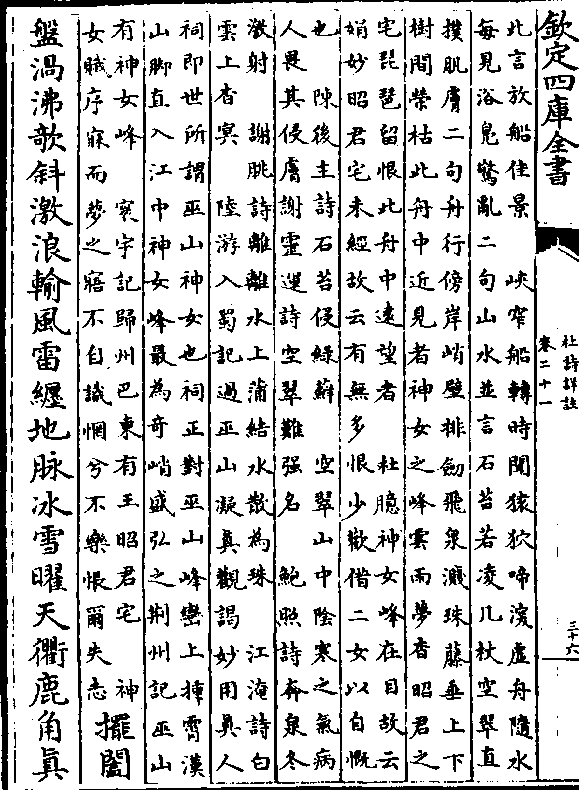 欽定四庫全書
杜詩詳註
卷二十一
三十六
此言放船佳景　峽窄船轉時聞猿狖啼滚虚舟隨水
每見浴鳧驚亂二句山水並言石苔若凌几杖空翠直
撲肌膚二句舟行傍岸峭壁排劍飛泉濺珠藤垂上下
樹間榮枯此舟中近見者神女之峰雲雨夢杳昭君之
宅琵琶留恨此舟中遠望者　杜臆神女峰在目故云
娟妙昭君宅未經故云有無多恨少歡借二女以自慨
也　陳後主詩石苔侵綠蘚　空翠山中陰寒之氣病
人畏其侵膚謝靈運詩空翠難强名　鮑照詩奔泉冬
激射　謝朓詩離離水上蒲結水散為珠　江淹詩白
雲上杳冥　陸游入蜀記過巫山凝真觀謁妙用真人
祠即世所謂巫山神女也祠正對巫山峰巒上揷霄漢
山脚直入江中神女峰最為奇峭盛弘之荆州記巫山
有神女峰　寰宇記歸州巴東有王昭君宅　神
女賦序寐而夢之寤不自識惘兮不樂悵爾失志
擺闔
盤渦沸欹斜激浪輸風雷纒地脉冰雪曜天衢鹿角真